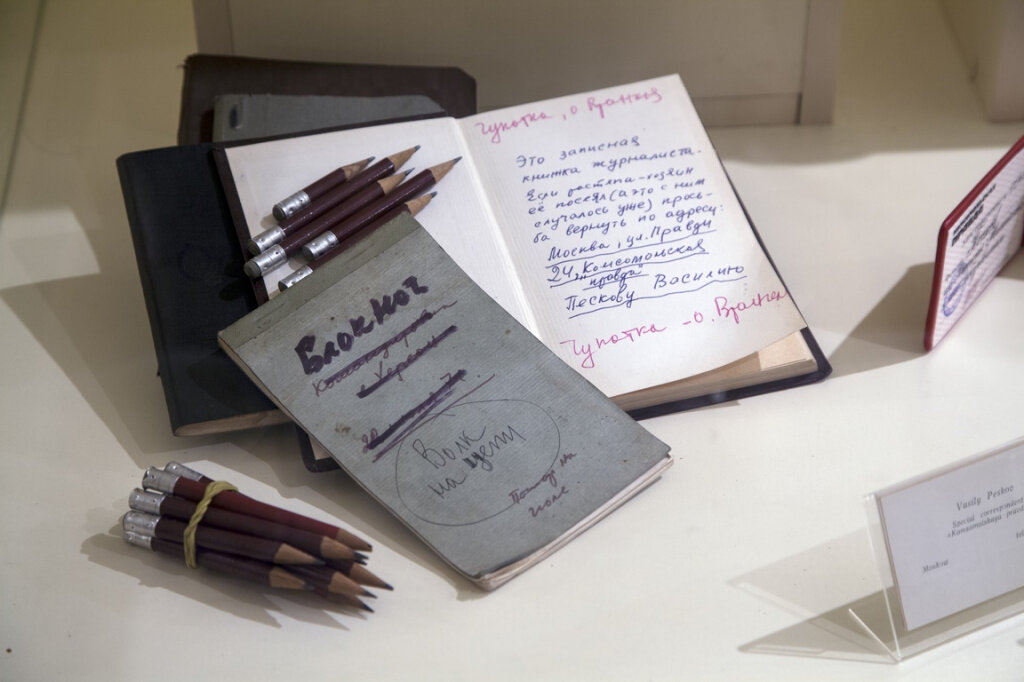 Чукотка, о Врангел
Это записная
книжка журналиста.
Если растяпа-хозяин
её посеял (а это с ним
случалось уже) прось-
ба вернуть по адресу:
Москва, ул. Правды
24, „Комсомольская
правда"
Пескову Василию
Чукотка - о. Врангел
Блокнот
Волк
на цепи
поле
Vasily Peskov
Special correspondent
«Komsomolskaya pravd
Moskva